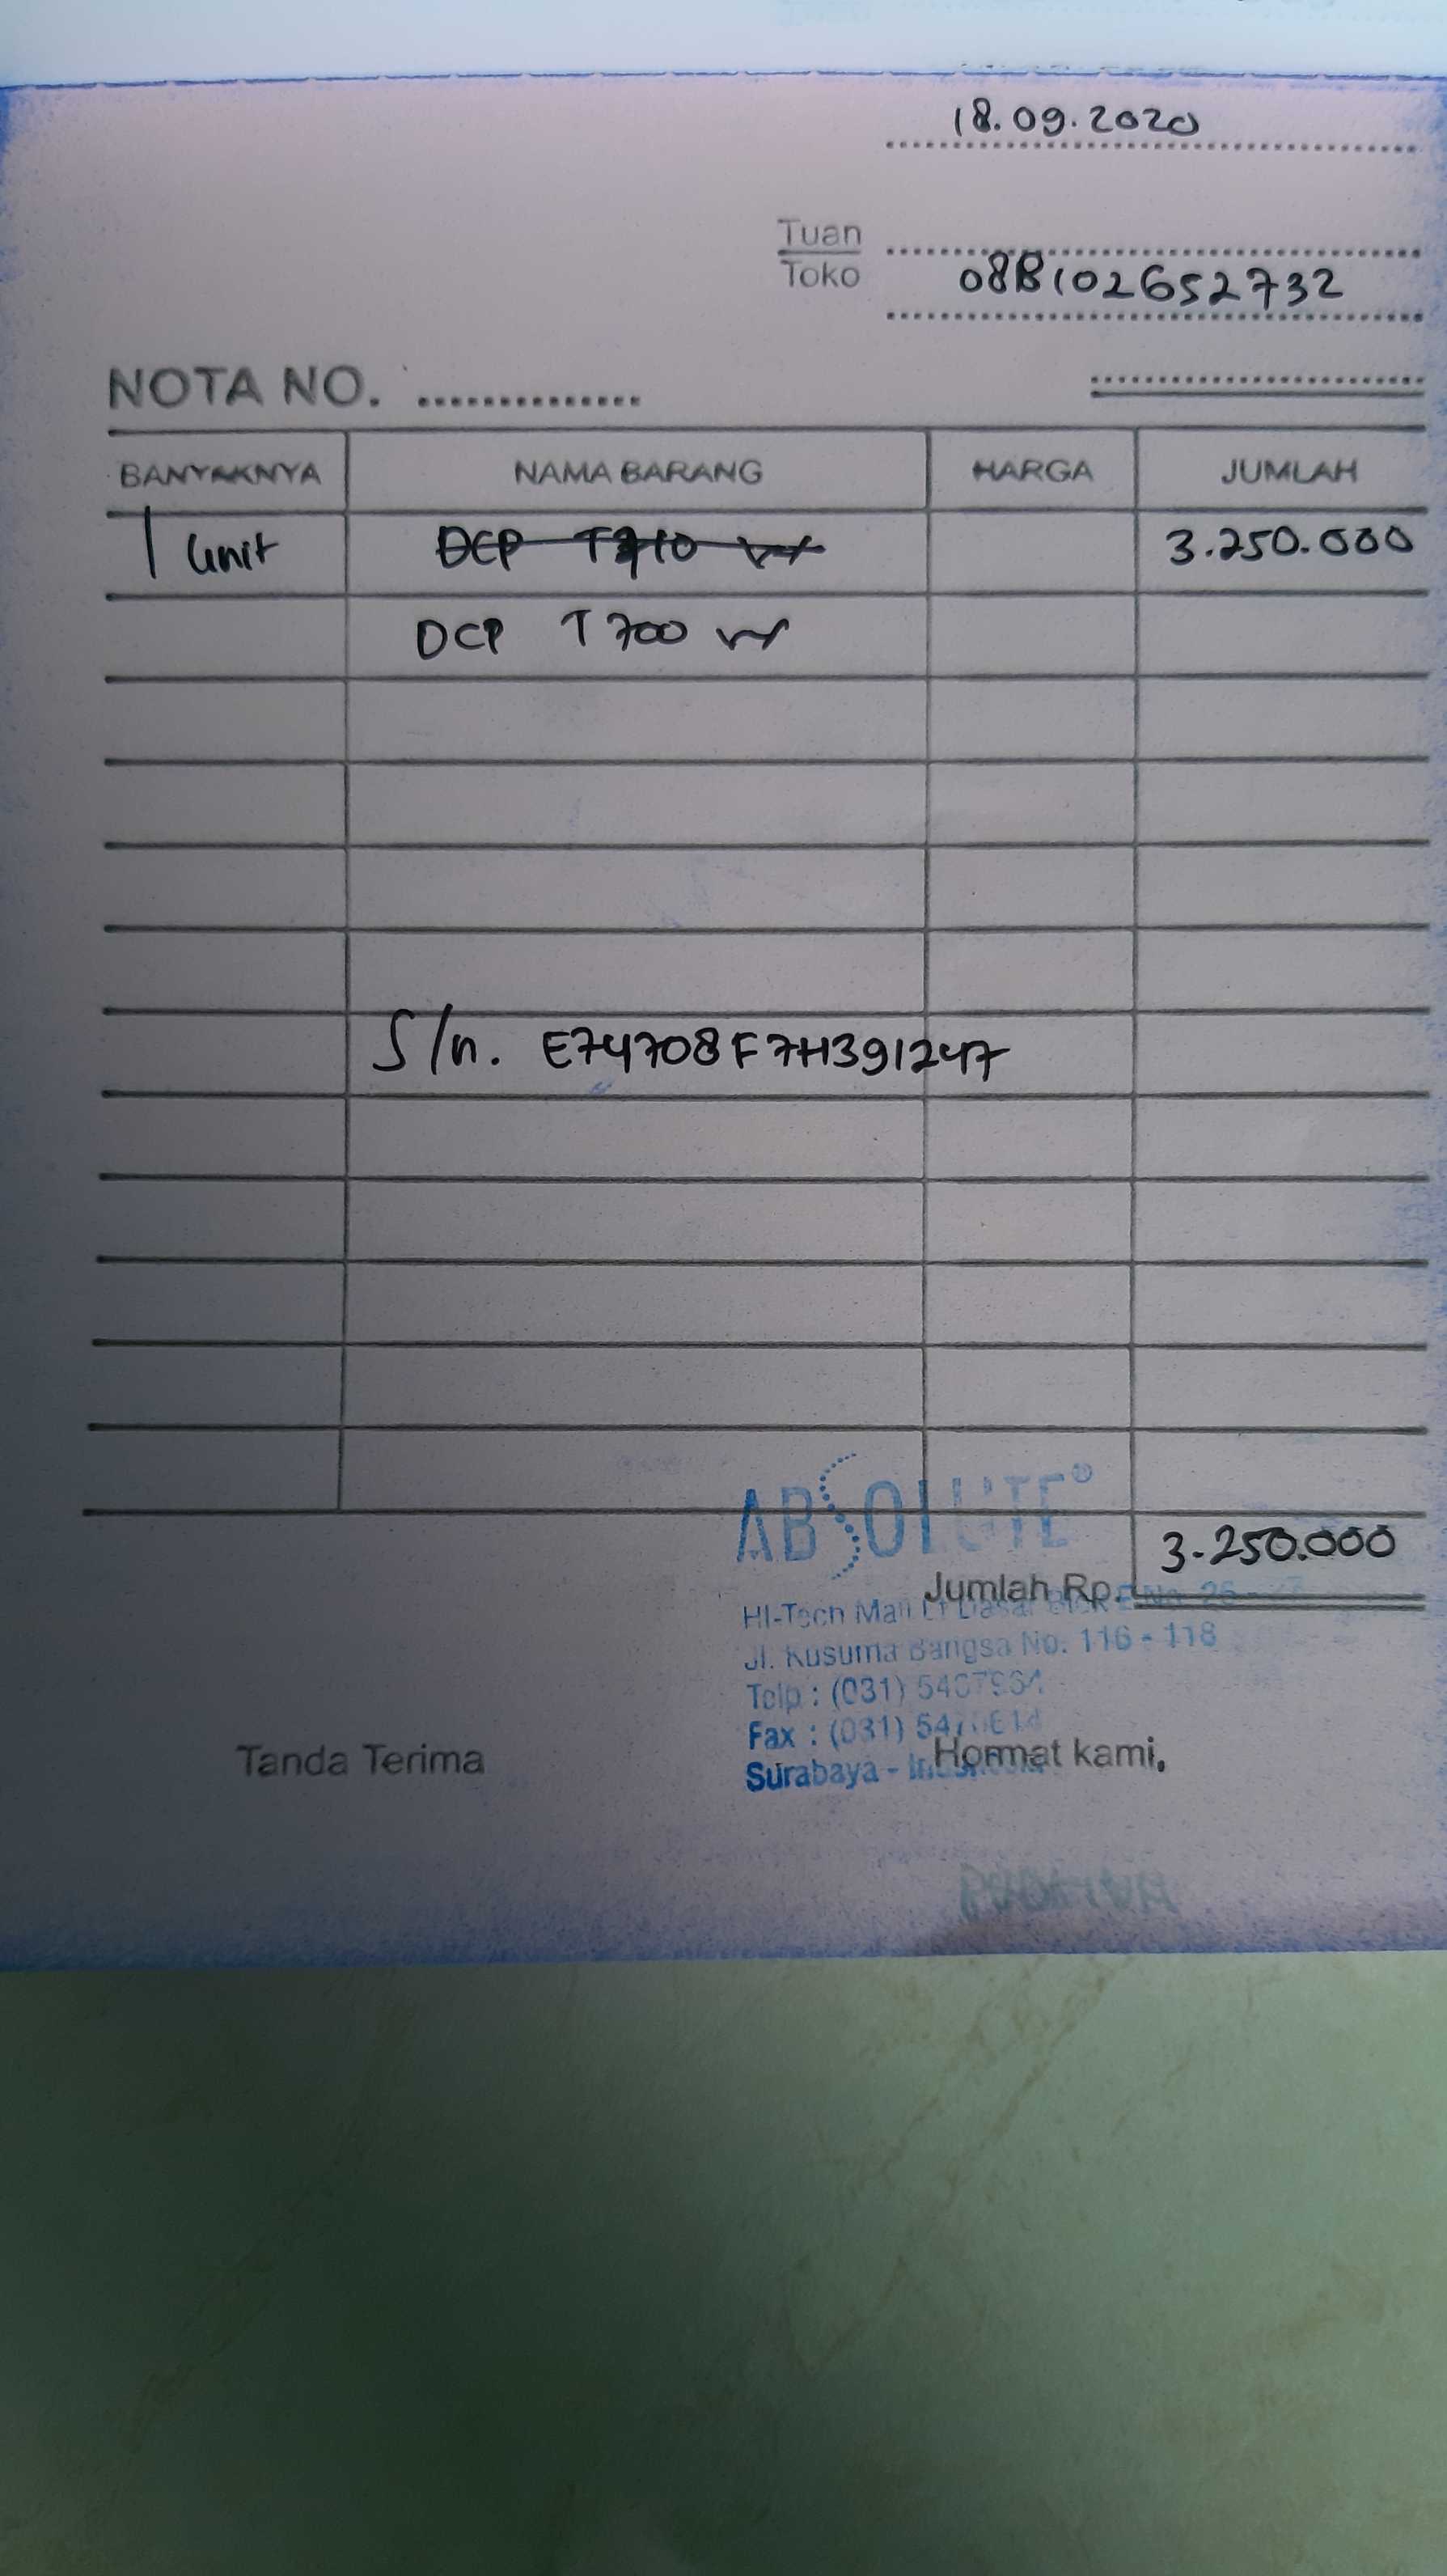 18.09.2020
Tuan
Toko 088102652732
NOTA NO. ..............
BANYAKNYA NAMA BARANG HARGA JUMLAH
1 Unit DCP T710 W 3.250.000
DCP T700 W
S/n. E74708F7H391247
ABSOLUTE®
3.250.000
Jumlah Rp.
HI-Tech Mall Lt Dasar Blok E No. 25 - 27
Jl. Kusuma Bangsa No. 116 - 118
Telp : (031)
Fax : (031)
Surabaya - Indonesia
Tanda Terima Hormat kami,